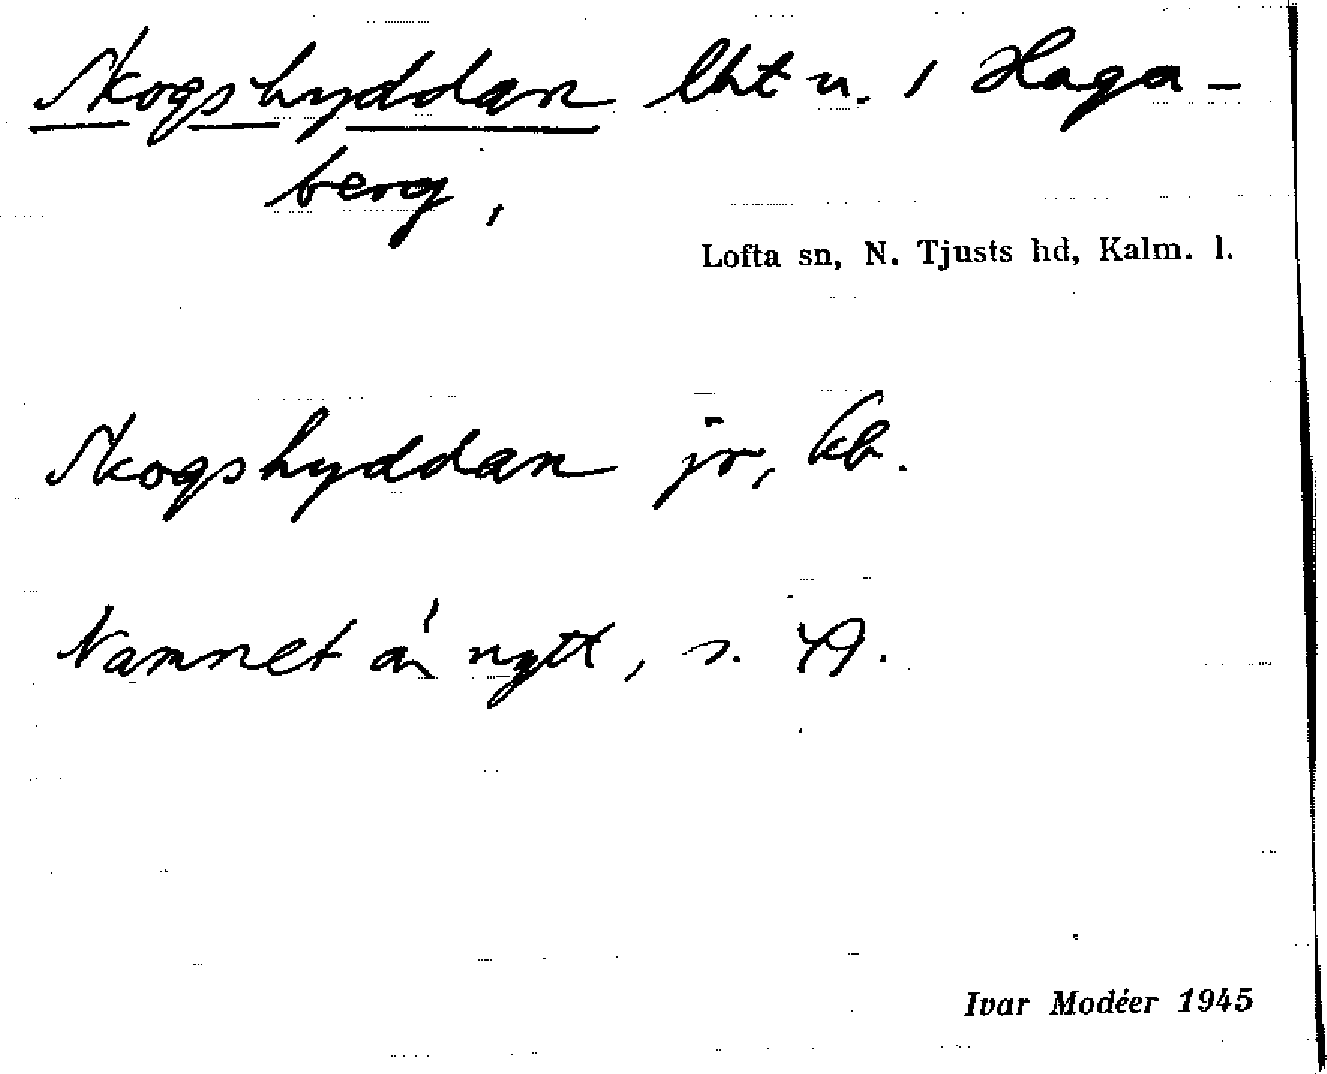 Skogshyddan lht u. / Haga-
berg,
Lofta sn, N. Tjusts hd, Kalm. l.
Skogshyddan jr, kb.
Namnet är nytt, s.
Ivar Modéer 1945